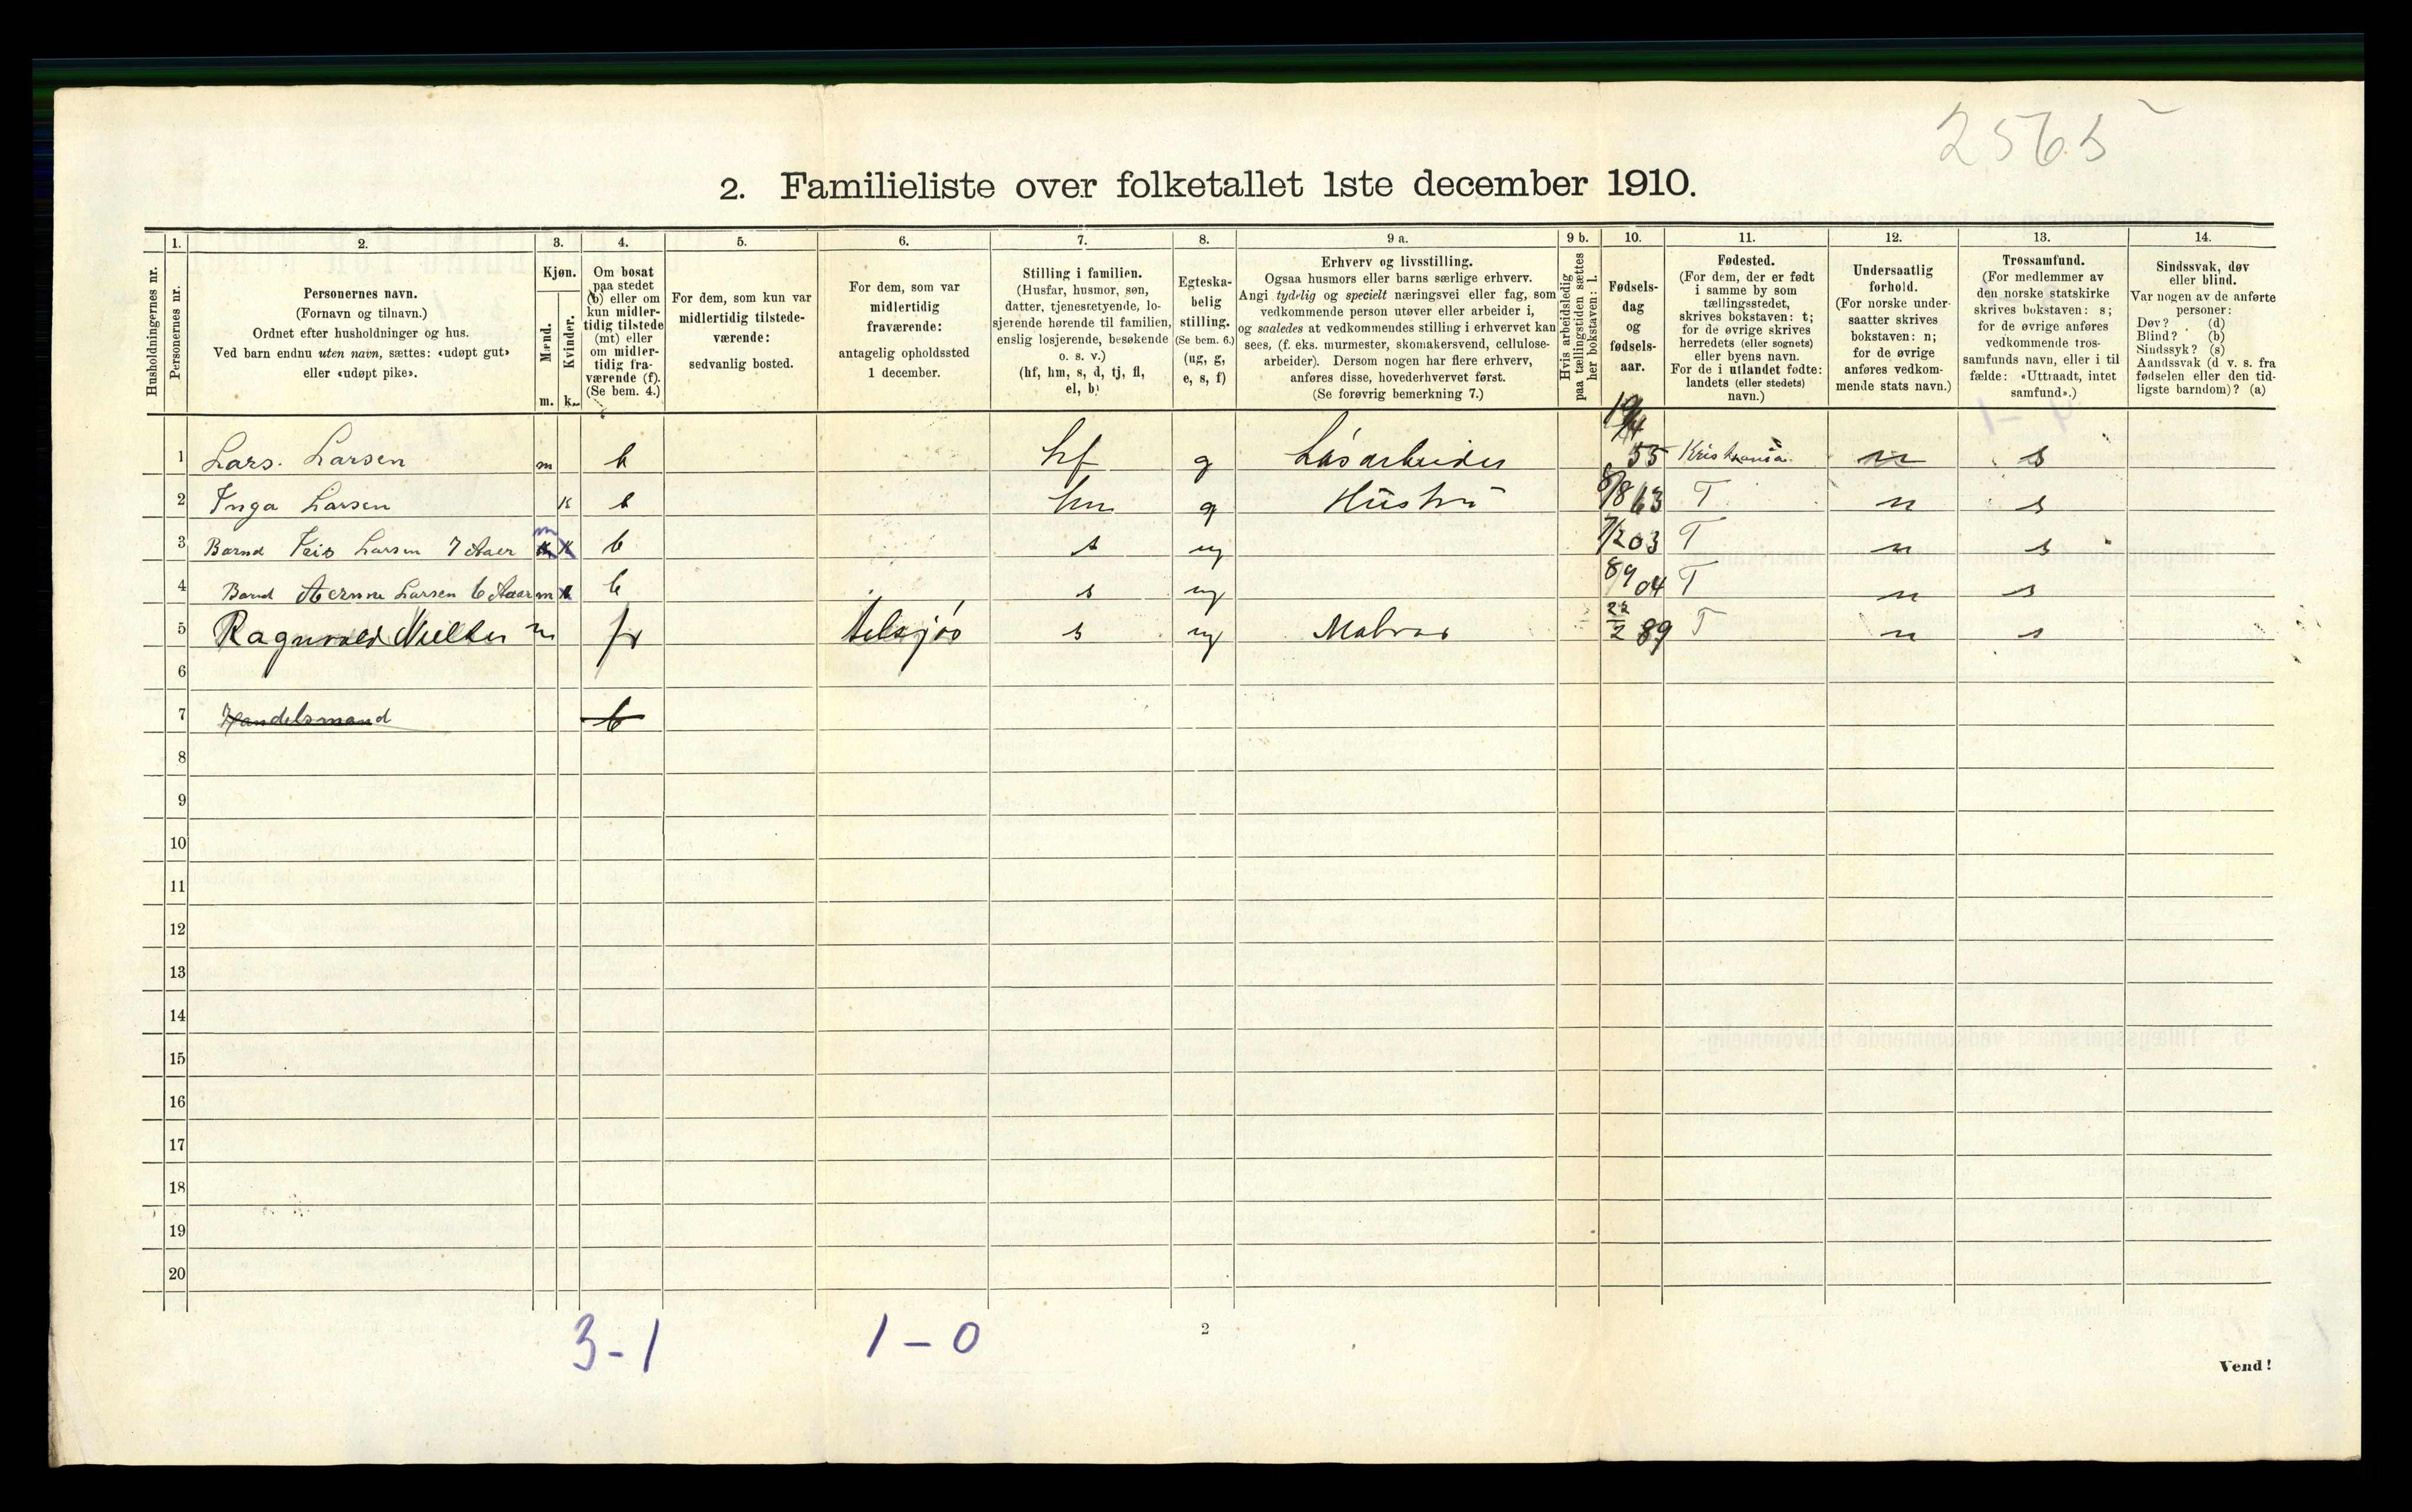 2565
2. Familieliste over folketallet 1ste december 1910.
Husholdningernes nr.
1.
Personernes nr.
2.
Personernes navn.
(Fornavn og tilnavn.)
Ordnet efter husholdninger og hus.
Ved barn endnu uten navn, sættes: «udøpt gut»
eller «udøpt pike».
3.
Kjøn.
Mænd.
Kvinder.
m. k.
4.
Om bosat
paa stedet
(b) eller om
kun midler-
tidig tilstede
(mt) eller
om midler-
tidig fra-
værende (f).
(Se bem. 4.)
5.
For dem, som kun var
midlertidig tilstede-
værende:
sedvanlig bosted.
6.
For dem, som var
midlertidig
fraværende:
antagelig opholdssted
1 december.
7.
Stilling i familien.
(Husfar, husmor, søn,
datter, tjenestetyende, lo-
sjerende hørende til familien,
enslig losjerende, besøkende
o. s. v.)
(hf, hm, s, d, tj, fl,
el, b)
8.
Egteska-
belig
stilling.
(Se bem. 6.)
(ug, g,
e, s, f)
9 a.
Erhverv og livsstilling.
Ogsaa husmors eller barns særlige erhverv.
Angi tydelig og specielt næringsvei eller fag, som
vedkommende person utøver eller arbeider i,
og saaledes at vedkommendes stilling i erhvervet kan
sees, (f. eks. murmester, skomakersvend, cellulose-
arbeider). Dersom nogen har flere erhverv,
anføres disse, hovederhvervet først.
(Se forøvrig bemerkning 7.)
9 b.
Hvis arbeidsledig
paa tællingstiden sættes
her bokstaven: l.
10.
Fødsels-
dag
og
fødsels-
aar.
11.
Fødested.
(For dem, der er født
i samme by som
tællingsstedet,
skrives bokstaven: t;
for de øvrige skrives
herredets (eller sognets)
eller byens navn.
For de i utlandet fødte:
landets (eller stedets)
navn.)
12.
Undersaatlig
forhold.
(For norske under-
saatter skrives
bokstaven: n;
for de øvrige
anføres vedkom-
mende stats navn.)
13.
Trossamfund.
(For medlemmer av
den norske statskirke
skrives bokstaven: s;
for de øvrige anføres
vedkommende tros-
samfunds navn, eller i til
fælde: «Uttraadt, intet
samfund».)
14.
Sindssvak, døv
eller blind.
Var nogen av de anførte
personer:
Døv? (d)
Blind? (b)
Sindssyk? (s)
Aandssvak (d. v. s. fra
fødselen eller den tid-
ligste barndom)? (a)
1 Lars. Larsen m b hf g Løsarbeider 55 Kristiania n s
2 Inga Larsen K b hm g Hüstrü 8/8 63 T n s
3 Barnd Larsen 7 Aaer m b s ug 7/2 03 T n s
4 Barnd Larsen 6 Aaer m b s ug 8/9 04 T n s
5 Ragnvald m fr s ug 22/2 89 T n s
6
7 Handelsmand b
8
9
10
11
12
13
14
15
16
17
18
19
20
3-1 1-0
2
Vend!